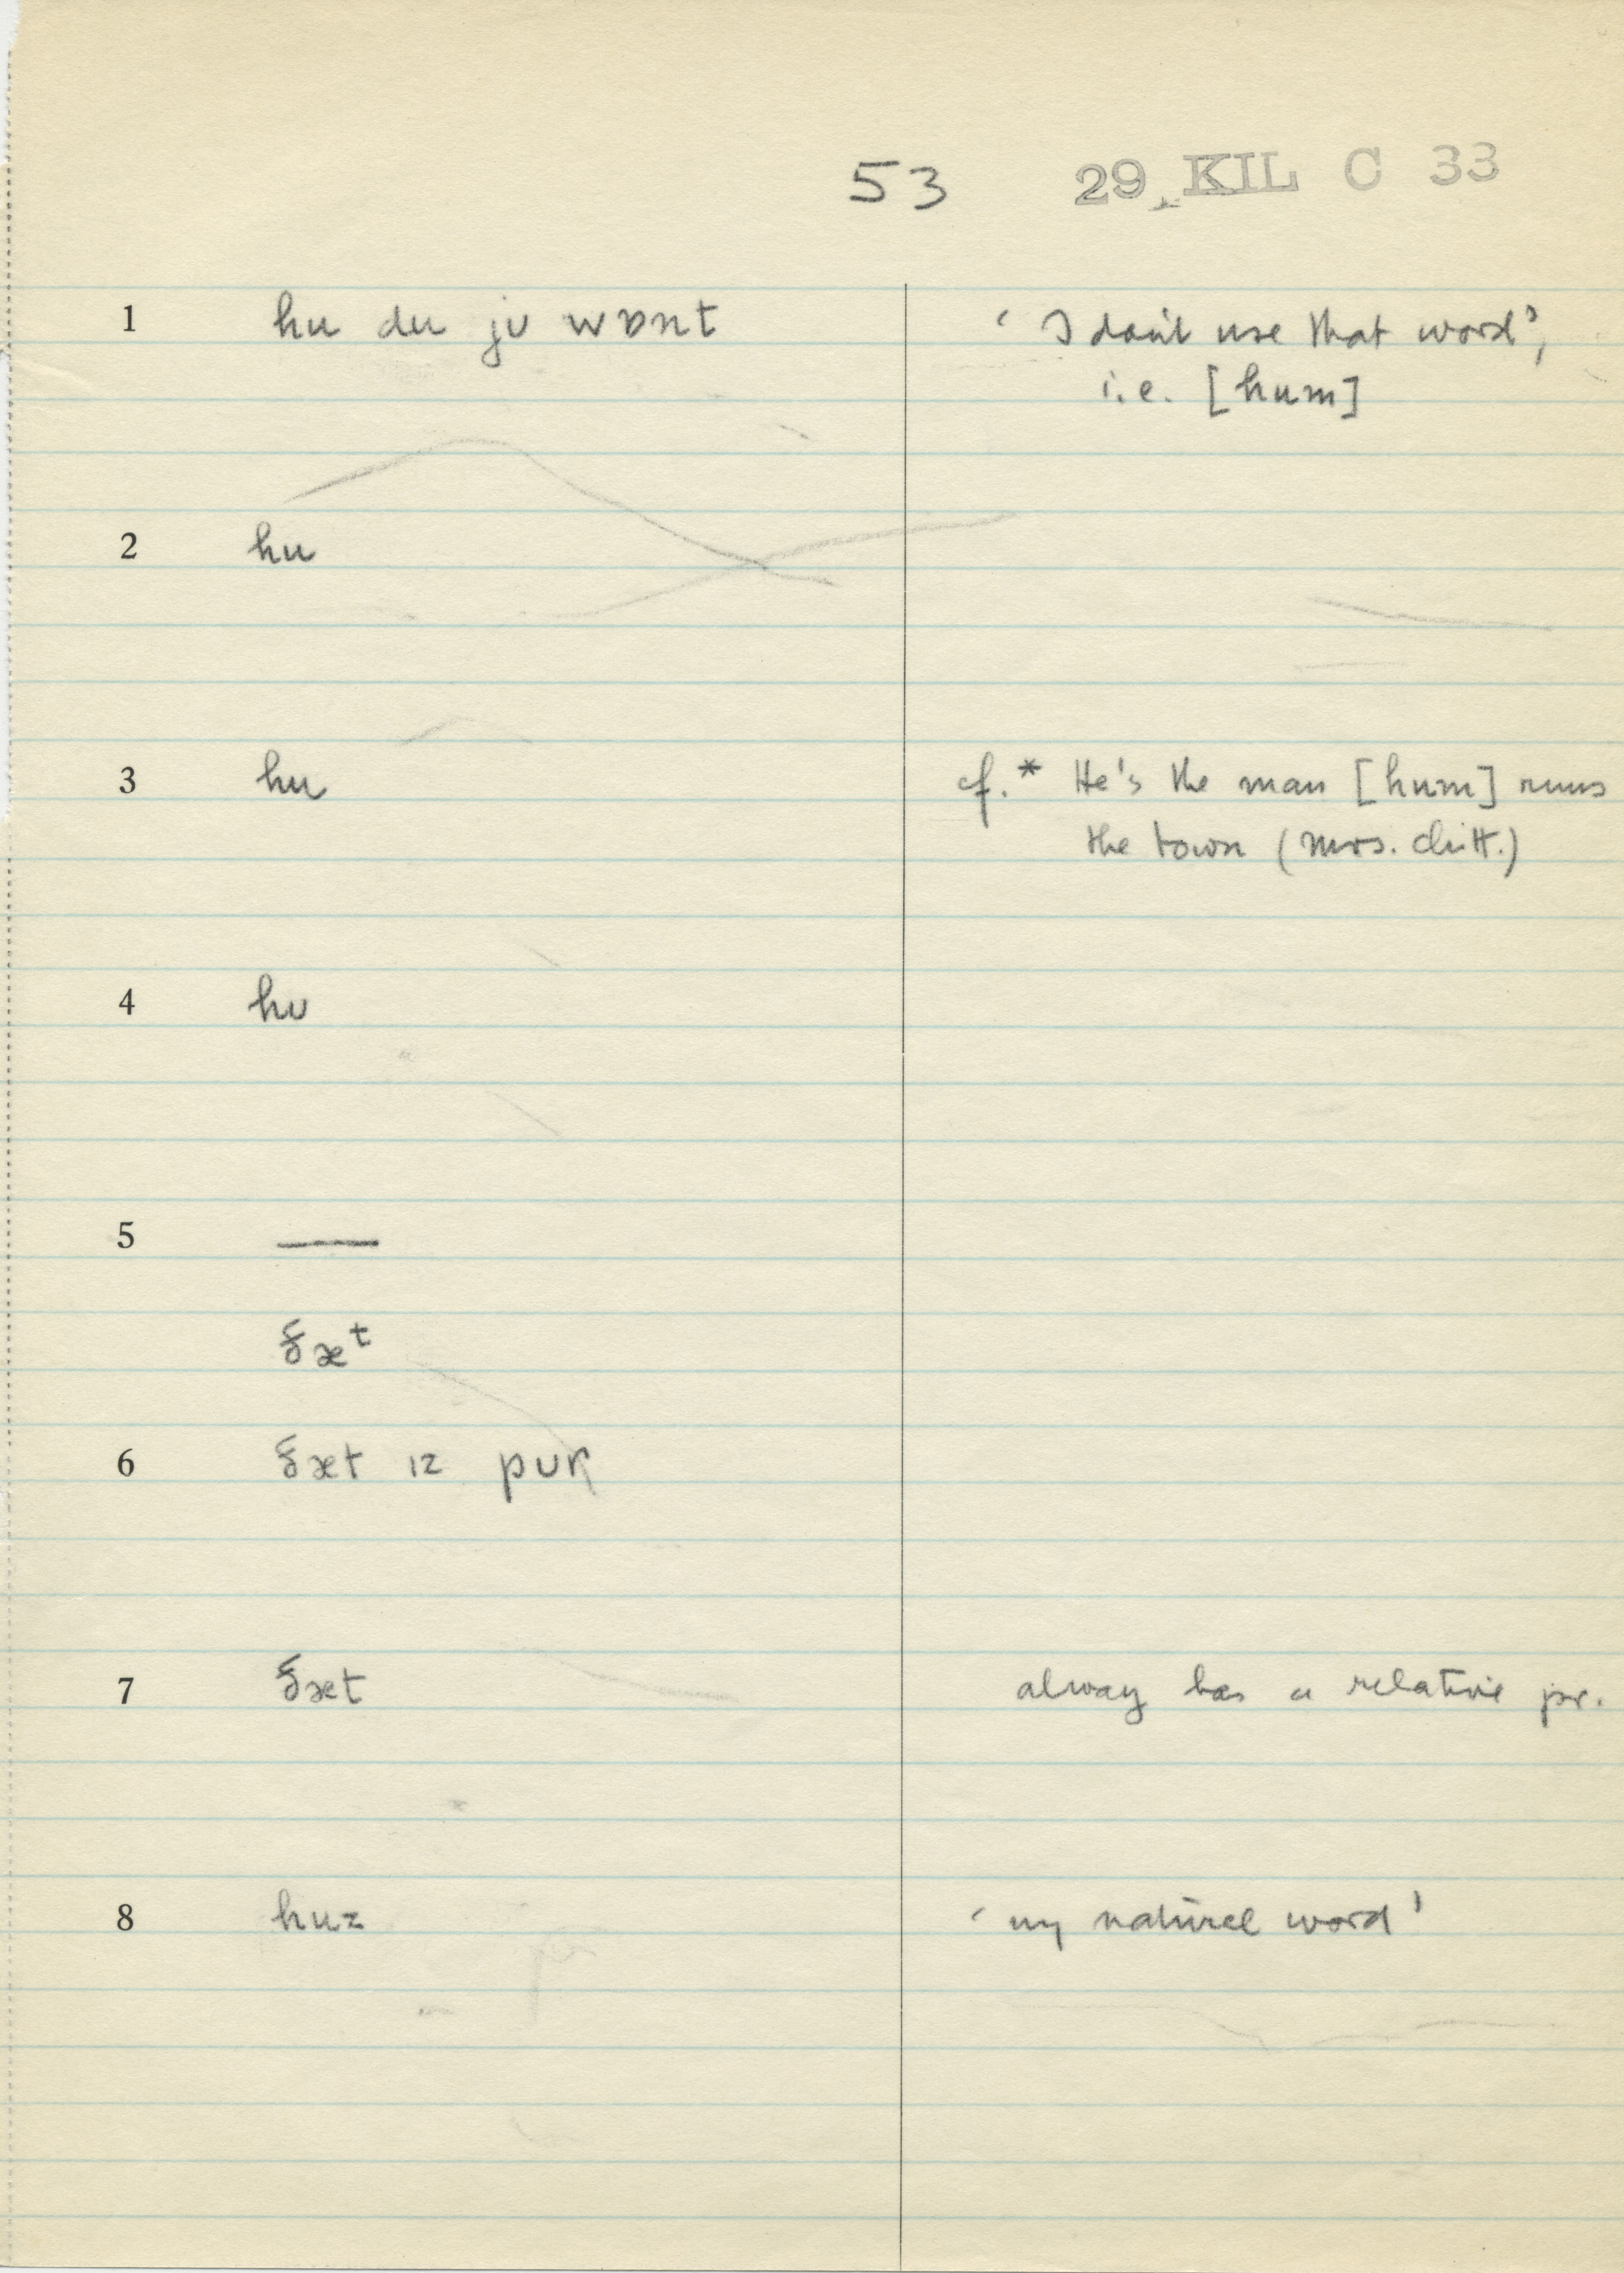 53 29 KIL C 33
1 hu du jʊ wɒnt ‘I don't use that word’,
i.e. [hum]
2 hu
3 hu cf.* He's the man [hum] runs
the town (Mrs. Chitt.)
4 hʊ
5 —
ðæᵗ
6 ðæt ɪz pʊr
7 ðæt alway has a relative pr.
8 huz ‘my natural word’